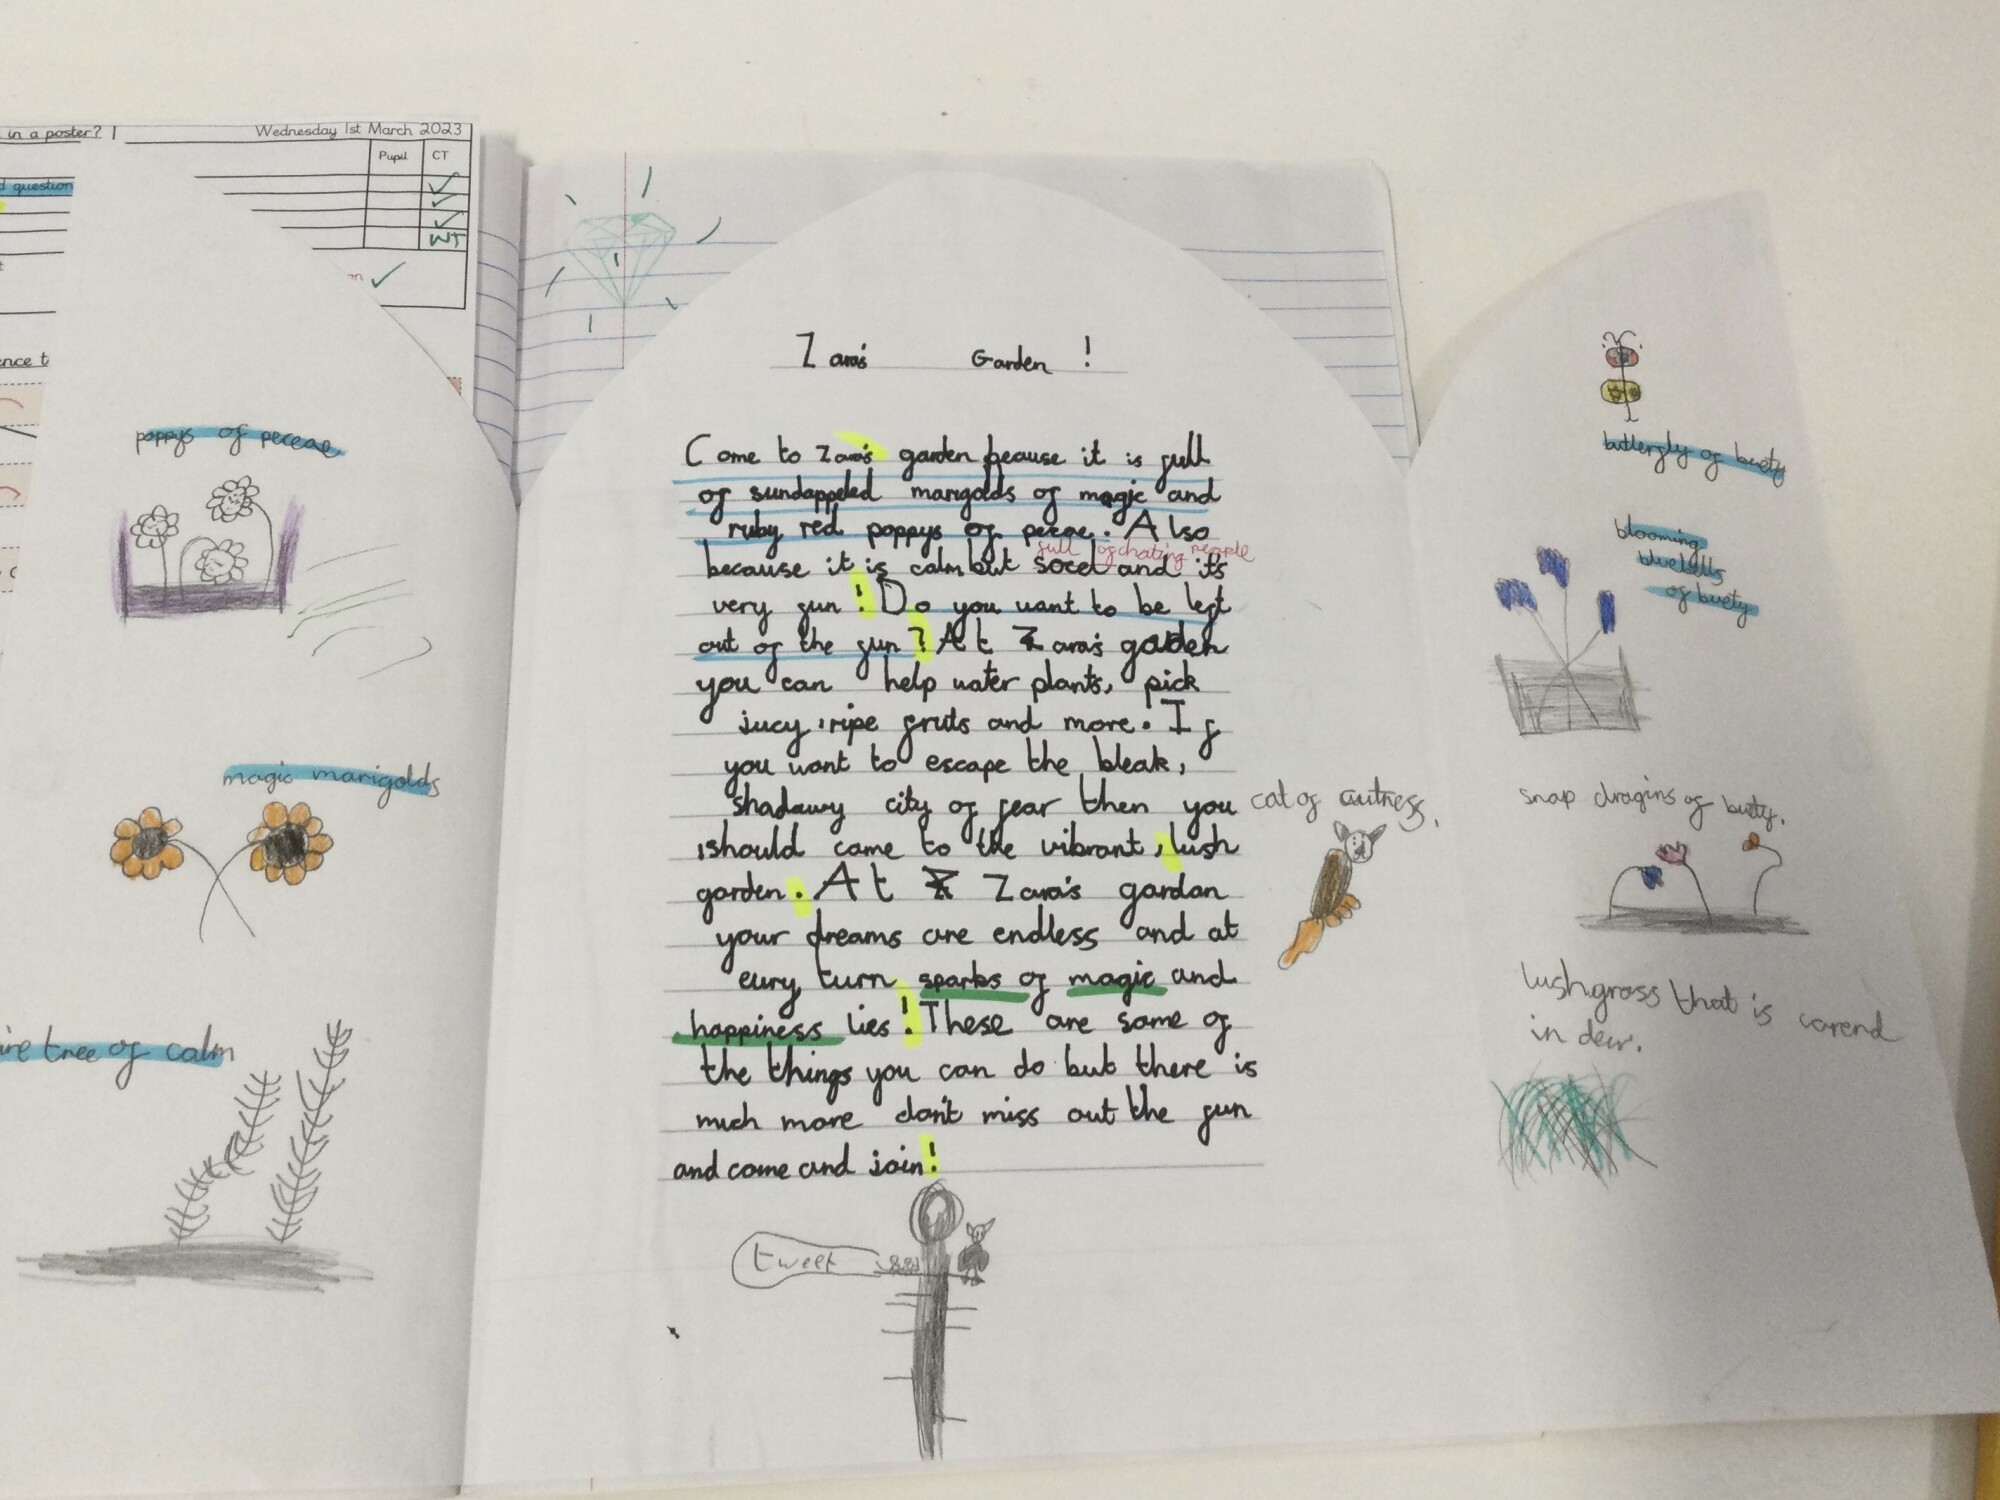 in a poster?
Wednesday 1st March 2023
Pupil CT
d question
WT
ence t
poppys of peceae
magic marigolds
ire tree of calm
Zara's Garden !
Come to Zara's garden beause it is full
of sundappeled marigolds of magic and
ruby red poppys of peceae. Also
full of chating people
because it is calm but socel and it's
very fun! Do you want to be left
out of the fun? At Zara's garden
you can help water plants, pick
jucy, ripe fruts and more. If
you want to escape the bleak,
shadawy city of fear then you
should come to the vibrant, lush
garden. At Zara's gardan
your dreams are endless and at
eury turn sparks of magic and
happiness lies! These are some of
the things you can do but there is
much more don't miss out the fun
and come and join!
tweet
cat of cutness.
butterfly of buety
blooming
bluebells
of buety
snap dragins of buety.
lush grass that is corend
in dew.